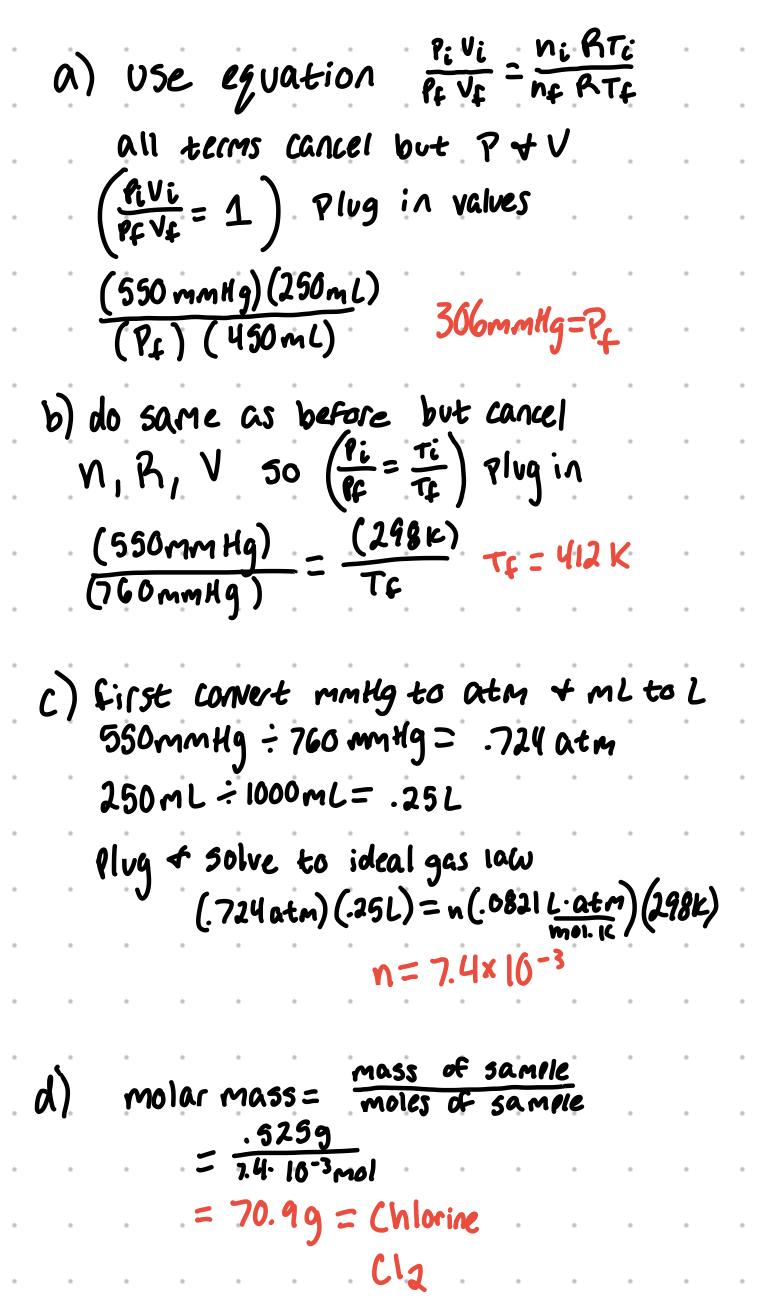 a) use equation PiVi/PfVf = niRTi/nfRTf
all terms cancel but P & V
(PiVi/PfVf = 1) plug in values
(550 mmHg)(250mL)/(Pf)(450mL) 306mmHg=Pf
b) do same as before but cancel
n, R, V so (Pi/Pf = Ti/Tf) plug in
(550mmHg)/(760mmHg) = (298K)/Tf Tf = 412 K
c) first convert mmHg to atm & mL to L
550mmHg ÷ 760 mmHg = .724 atm
250mL ÷ 1000mL = .25L
Plug & solve to ideal gas law
(.724 atm)(.25L) = n(.0821 L·atm/mol·K)(298K)
n = 7.4×10⁻³
d) molar mass = mass of sample/moles of sample
= .525g/7.4·10⁻³mol
= 70.9g = Chlorine
Cl₂